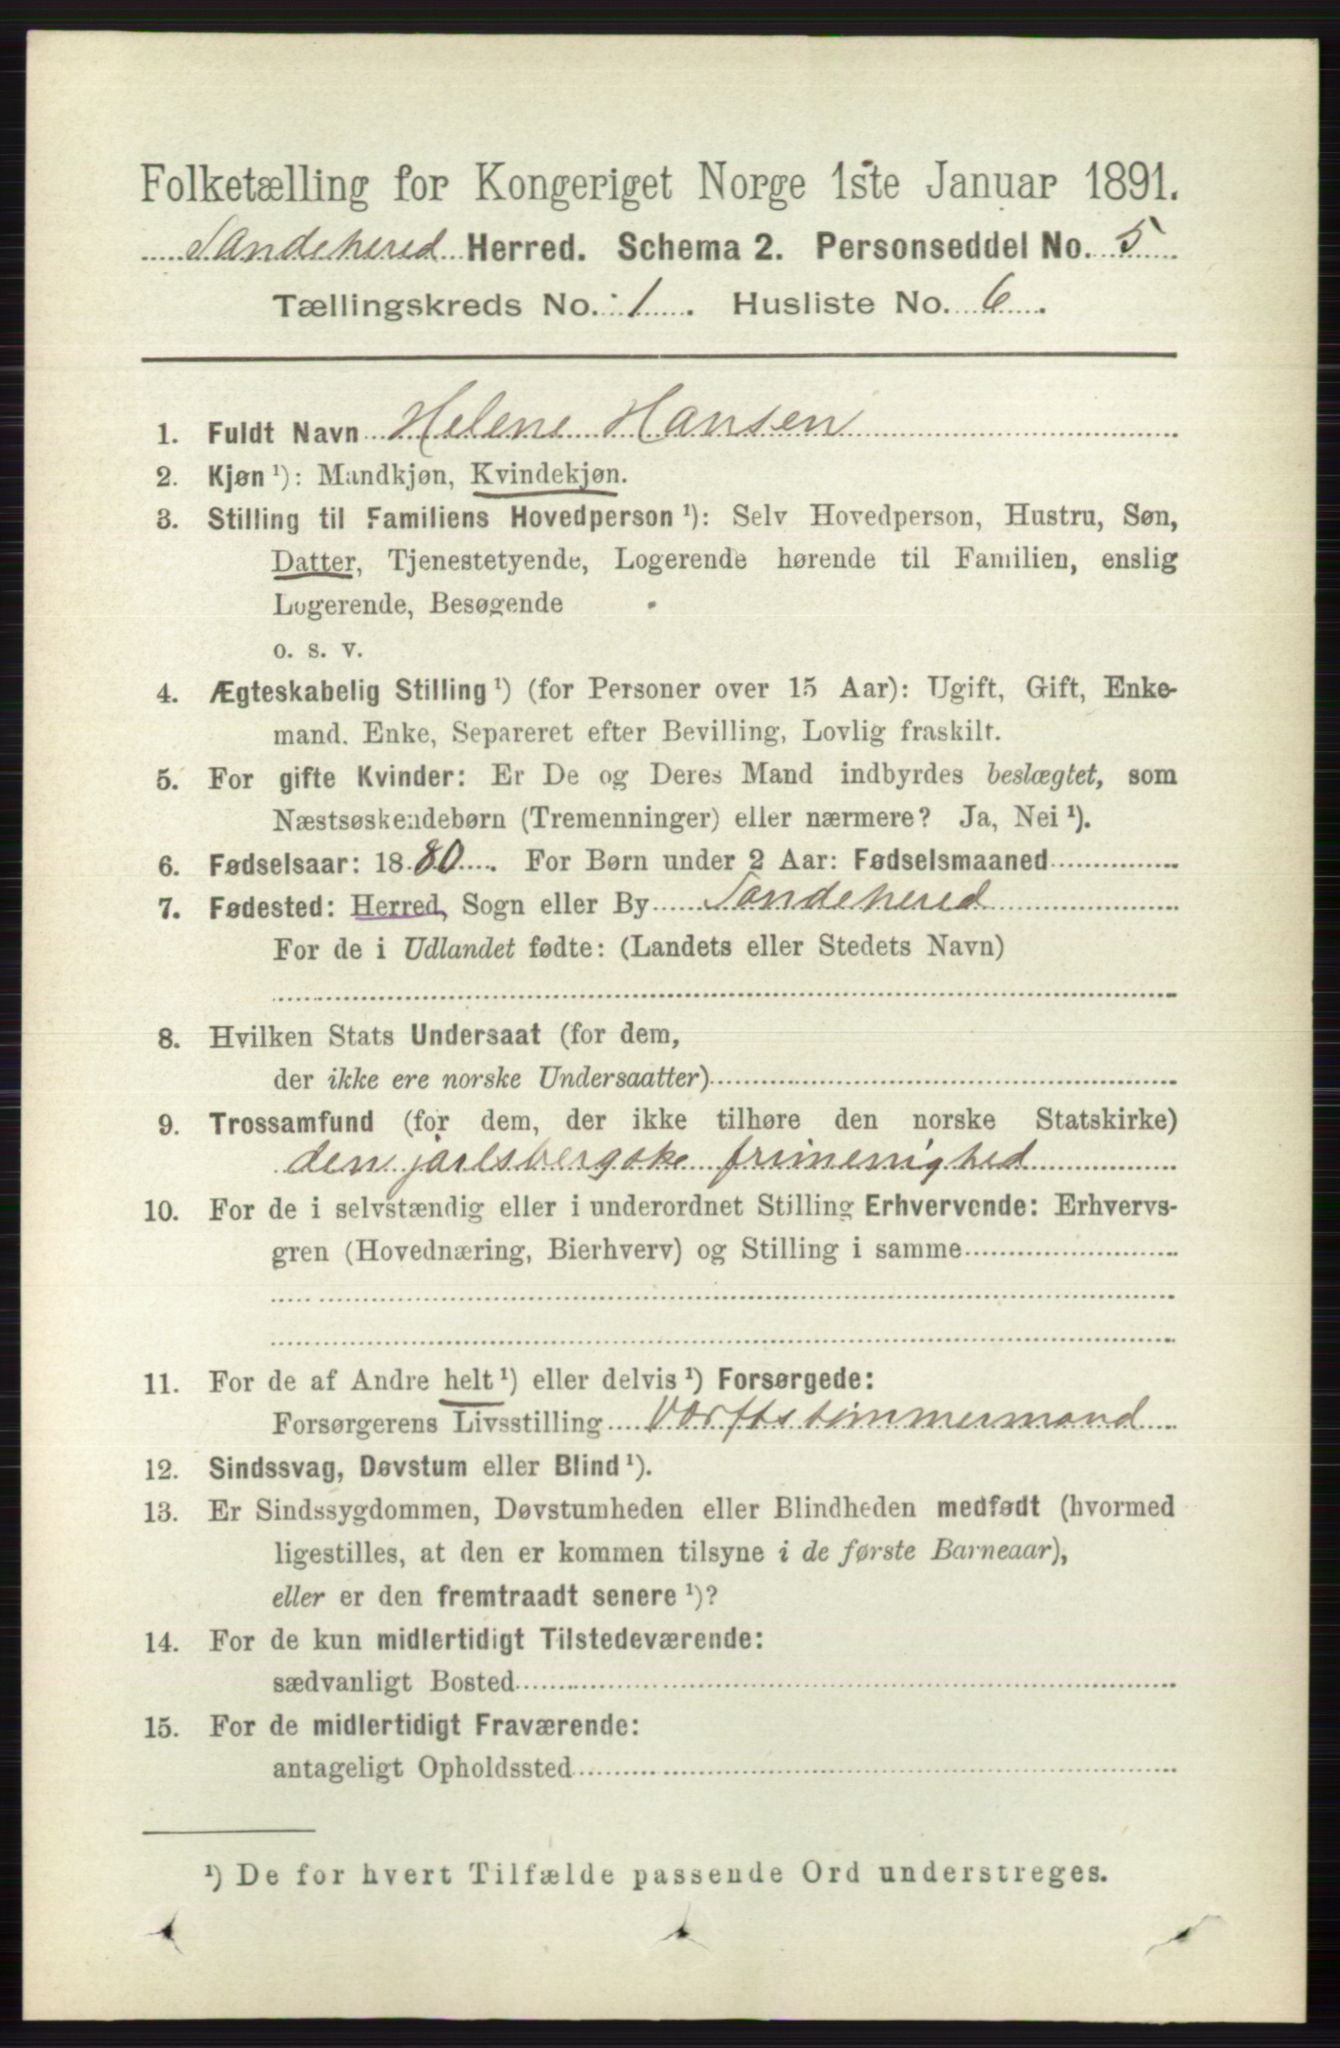 Folketælling for Kongeriget Norge 1ste Januar 1891.
Sandehered Herred. Schema 2. Personseddel No. 5
Tællingskreds No. 1. Husliste No. 6.
1. Fuldt Navn Helene Hansen
2. Kjøn ¹): Mandkjøn, Kvindekjøn.
3. Stilling til Familiens Hovedperson ¹): Selv Hovedperson, Hustru, Søn,
Datter, Tjenestetyende, Logerende hørende til Familien, enslig
Logerende, Besøgende
o. s. v.
4. Ægteskabelig Stilling ¹) (for Personer over 15 Aar): Ugift, Gift, Enke-
mand. Enke, Separeret efter Bevilling, Lovlig fraskilt.
5. For gifte Kvinder: Er De og Deres Mand indbyrdes beslægtet, som
Næstsøskendebørn (Tremenninger) eller nærmere? Ja, Nei ¹).
6. Fødselsaar: 1880. For Børn under 2 Aar: Fødselsmaaned
7. Fødested: Herred, Sogn eller By Sandehered
For de i Udlandet fødte: (Landets eller Stedets Navn)
8. Hvilken Stats Undersaat (for dem,
der ikke ere norske Undersaatter)
9. Trossamfund (for dem, der ikke tilhøre den norske Statskirke)
den jarlsbergske frimenighed
10. For de i selvstændig eller i underordnet Stilling Erhvervende: Erhvervs-
gren (Hovednæring, Bierhverv) og Stilling i samme
11. For de af Andre helt ¹) eller delvis ¹) Forsørgede:
Forsørgerens Livsstilling Værftstømmermand
12. Sindssvag, Døvstum eller Blind ¹).
13. Er Sindssygdommen, Døvstumheden eller Blindheden medfødt (hvormed
ligestilles, at den er kommen tilsyne i de første Barneaar),
eller er den fremtraadt senere ¹)?
14. For de kun midlertidigt Tilstedeværende:
sædvanligt Bosted
15. For de midlertidigt Fraværende:
antageligt Opholdssted
¹) De for hvert Tilfælde passende Ord understreges.